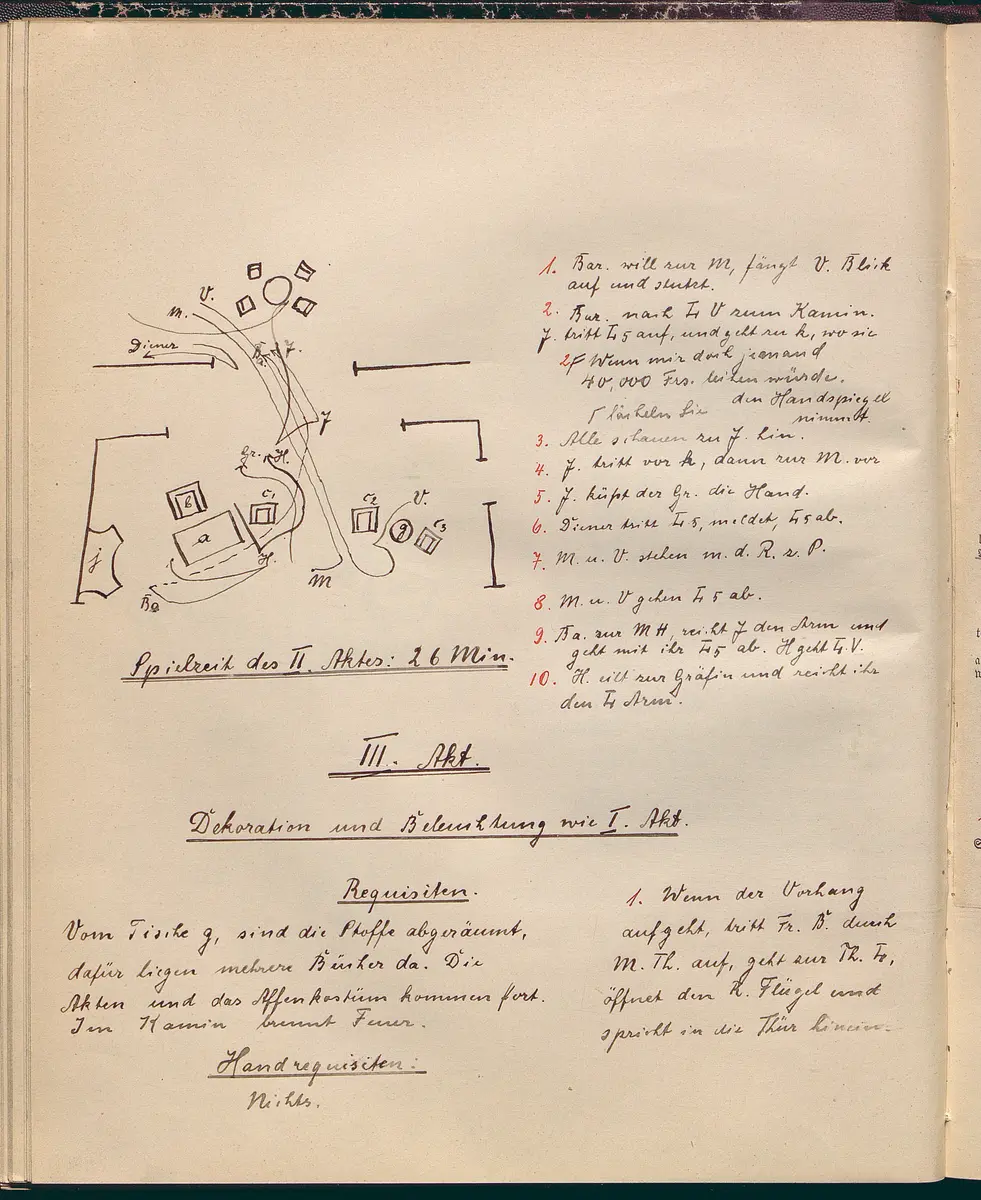 V.
M.
Diener
J.
J
Gr.
H.
b
C1
a
C2
V.
g
C3
j
H.
M
Ba
1. Bar. will zur M, fängt V. Blick
auf und stutzt.
2. Bar. nach L V zum Kamin.
J. tritt L 5 auf, und geht zu k, wo sie
2 Wenn mir doch jemand
40,000 Frs. leihen würde.
den Handspiegel
lächeln Sie
nimmt.
3. Alle schauen zu J. hin.
4. J. tritt vor k, dann zur M. vor
5. J. küßt der Gr. die Hand.
6. Diener tritt L 5, meldet, L 5 ab.
7. M. u. V. stehen m. d. R. z. P.
8. M. u. V gehen L 5 ab.
9. Ba. zur M H, reicht J den Arm und
geht mit ihr L 5 ab. H geht L V.
10. H. eilt zur Gräfin und reicht ihr
den L Arm.
Spielzeit des II. Aktes: 26 Min.
III. Akt.
Dekoration und Beleuchtung wie I. Akt.
Requisiten.
Vom Tische g, sind die Stoffe abgeräumt,
dafür liegen mehrere Bücher da. Die
Akten und das Affenkostüm kommen fort.
Im Kamin brennt Feuer.
Handrequisiten:
Nichts.
1. Wenn der Vorhang
aufgeht, tritt Fr. B. durch
M. Th. auf, geht zur Th. L,
öffnet den R. Flügel und
spricht in die Thür hinein.